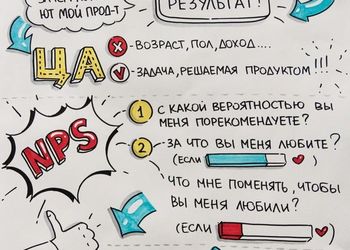 ЮТ МОЙ ПРОД-Т
РЕЗУЛЬТАТ!
ЦА
X - ВОЗРАСТ, ПОЛ, ДОХОД....
V - ЗАДАЧА, РЕШАЕМАЯ ПРОДУКТОМ!!!
NPS
1 С КАКОЙ ВЕРОЯТНОСТЬЮ ВЫ
МЕНЯ ПОРЕКОМЕНДУЕТЕ?
2 - ЗА ЧТО ВЫ МЕНЯ ЛЮБИТЕ?
(ЕСЛИ
)
ЧТО МНЕ ПОМЕНЯТЬ, ЧТОБЫ
ВЫ МЕНЯ ЛЮБИЛИ?
(ЕСЛИ
)